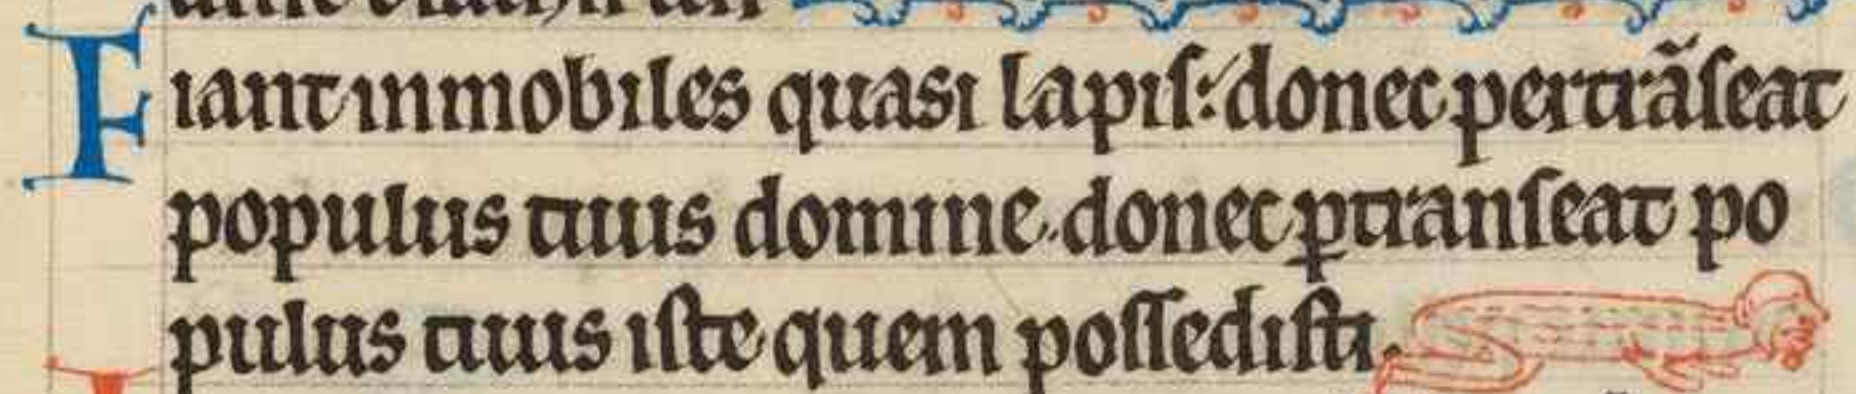 Fiant inmobiles quasi lapiſ: donec pertrãſeat
populus tuus domine. donec ꝑtranſeat po
pulus tuus iſte quem poſſediſti.